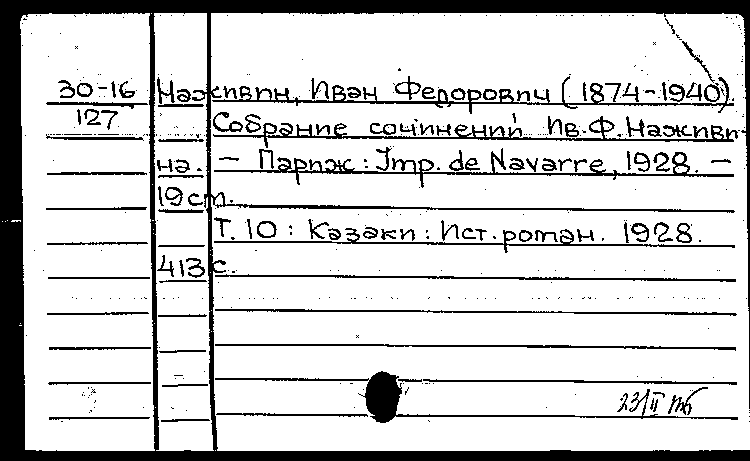 30-16 Наживин, Иван Федорович (1874-1940).
127 Собрание сочинений Ив.Ф.Наживи-
на. — Париж: Imp. de Navarre, 1928. —
19 cm.
Т. 10 : Казаки : Ист. роман. 1928.
413 с.
23/II